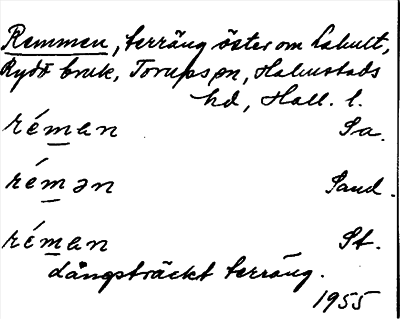 Remmen, terräng öster om Lahult,
Rydö bruk, Torups sn, Halmstads
hd, Hall. l.
rémɐn Sa.
rémən Sand.
rémɐn St.
långsträckt terräng.
1955